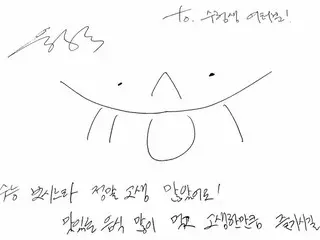 to. 수험생 여러분!
수능 보시느라 정말 고생 많았어요!
맛있는 음식 많이 먹고 고생한만큼 즐기시길